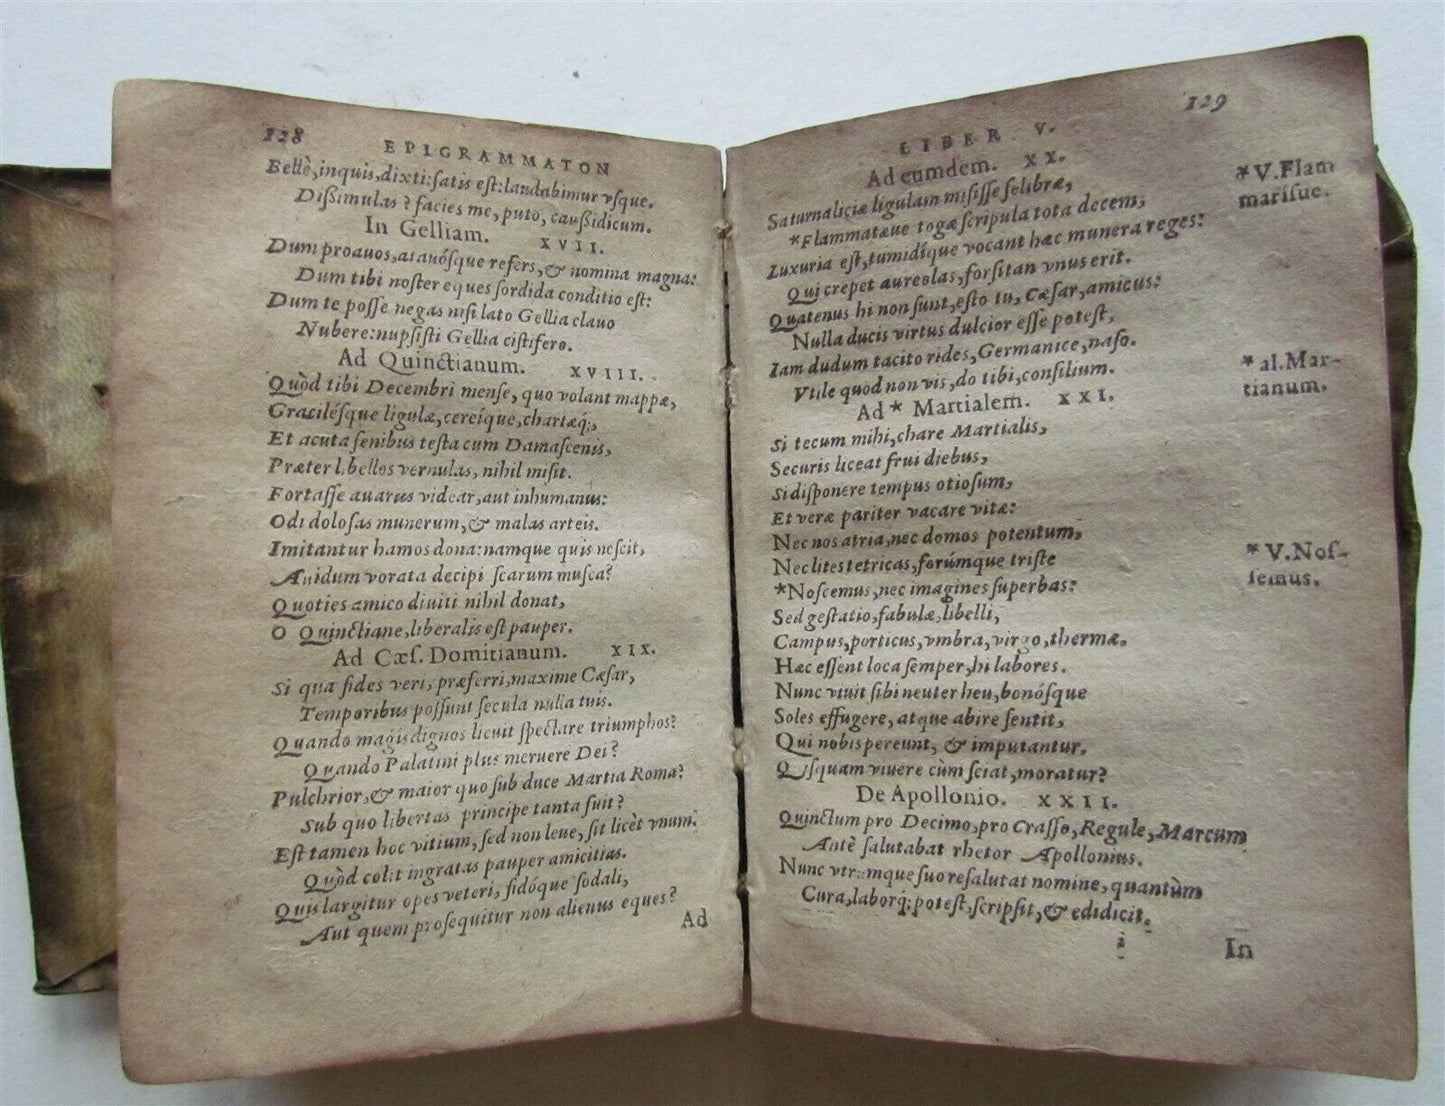 128
EPIGRAMMATON
Bellè, inquis, dixti: satis est: laudabimur vsque.
Dißimulas? facies me, puto, caußidicum.
In Gelliam. XVII.
Dum proauos, atauósque refers, & nomina magna:
Dum tibi noster eques sordida conditio est:
Dum te posse negas nisi lato Gellia clauo
Nubere: nupsisti Gellia cistifero.
Ad Quinctianum. XVIII.
Quòd tibi Decembri mense, quo volant mappæ,
Gracilésque ligulæ, cereíque, chartæq;,
Et acuta senibus testa cum Damascenis,
Præter libellos vernulas, nihil misit.
Fortasse auarus videar, aut inhumanus:
Odi dolosas munerum, & malas arteis.
Imitantur hamos dona: namque quis nescit,
Auidum vorata decipi scarum musca?
Quoties amico diuiti nihil donat,
O Quinctiane, liberalis est pauper.
Ad Cæs. Domitianum. XIX.
Si qua fides veri, præferri, maxime Cæsar,
Temporibus possunt secula nulla tuis.
Quando magis dignos licuit spectare triumphos?
Quando Palatini plus meruere Dei?
Pulchrior, & maior quo sub duce Martia Roma?
Sub quo libertas principe tanta fuit?
Est tamen hoc vitium, sed non leue, sit licèt vnum.
Quòd colit ingratas pauper amicitias.
Quis largitur opes veteri, fidóque sodali,
Aut quem prosequitur non alienus eques?
Ad
129
LIBER V.
Ad eumdem. XX.
Saturnaliciæ ligulam misisse selibræ,
*Flammatæue togæ scripula tota decem,
Luxuria est, tumidíque vocant hæc munera reges:
Qui crepet aureolas, forsitan vnus erit.
Quatenus hi non sunt, esto tu, Cæsar, amicus:
Nulla ducis virtus dulcior esse potest,
Iam dudum tacito rides, Germanice, naso.
Vtile quod non vis, do tibi, consilium.
Ad * Martialem. XXI.
Si tecum mihi, chare Martialis,
Securis liceat frui diebus,
Si disponere tempus otiosum,
Et veræ pariter vacare vitæ:
Nec nos atria, nec domos potentum,
Nec lites tetricas, forúmque triste
*Noscemus, nec imagines superbas:
Sed gestatio, fabulæ, libelli,
Campus, porticus, vmbra, virgo, thermæ.
Hæc essent loca semper, hi labores.
Nunc viuit sibi neuter heu, bonósque
Soles effugere, atque abire sentit,
Qui nobis pereunt, & imputantur.
Quisquam viuere cùm sciat, moratur?
De Apollonio. XXII.
Quinctum pro Decimo, pro Crasso, Regule, Marcum
Antè salutabat rhetor Apollonius.
Nunc vtrumque suo resalutat nomine, quantùm
Cura, laborq; potest, scripsit, & edidicit.
i
In
* V. Flam
marisue.
* al. Mar-
tianum.
* V. Nos-
semus.